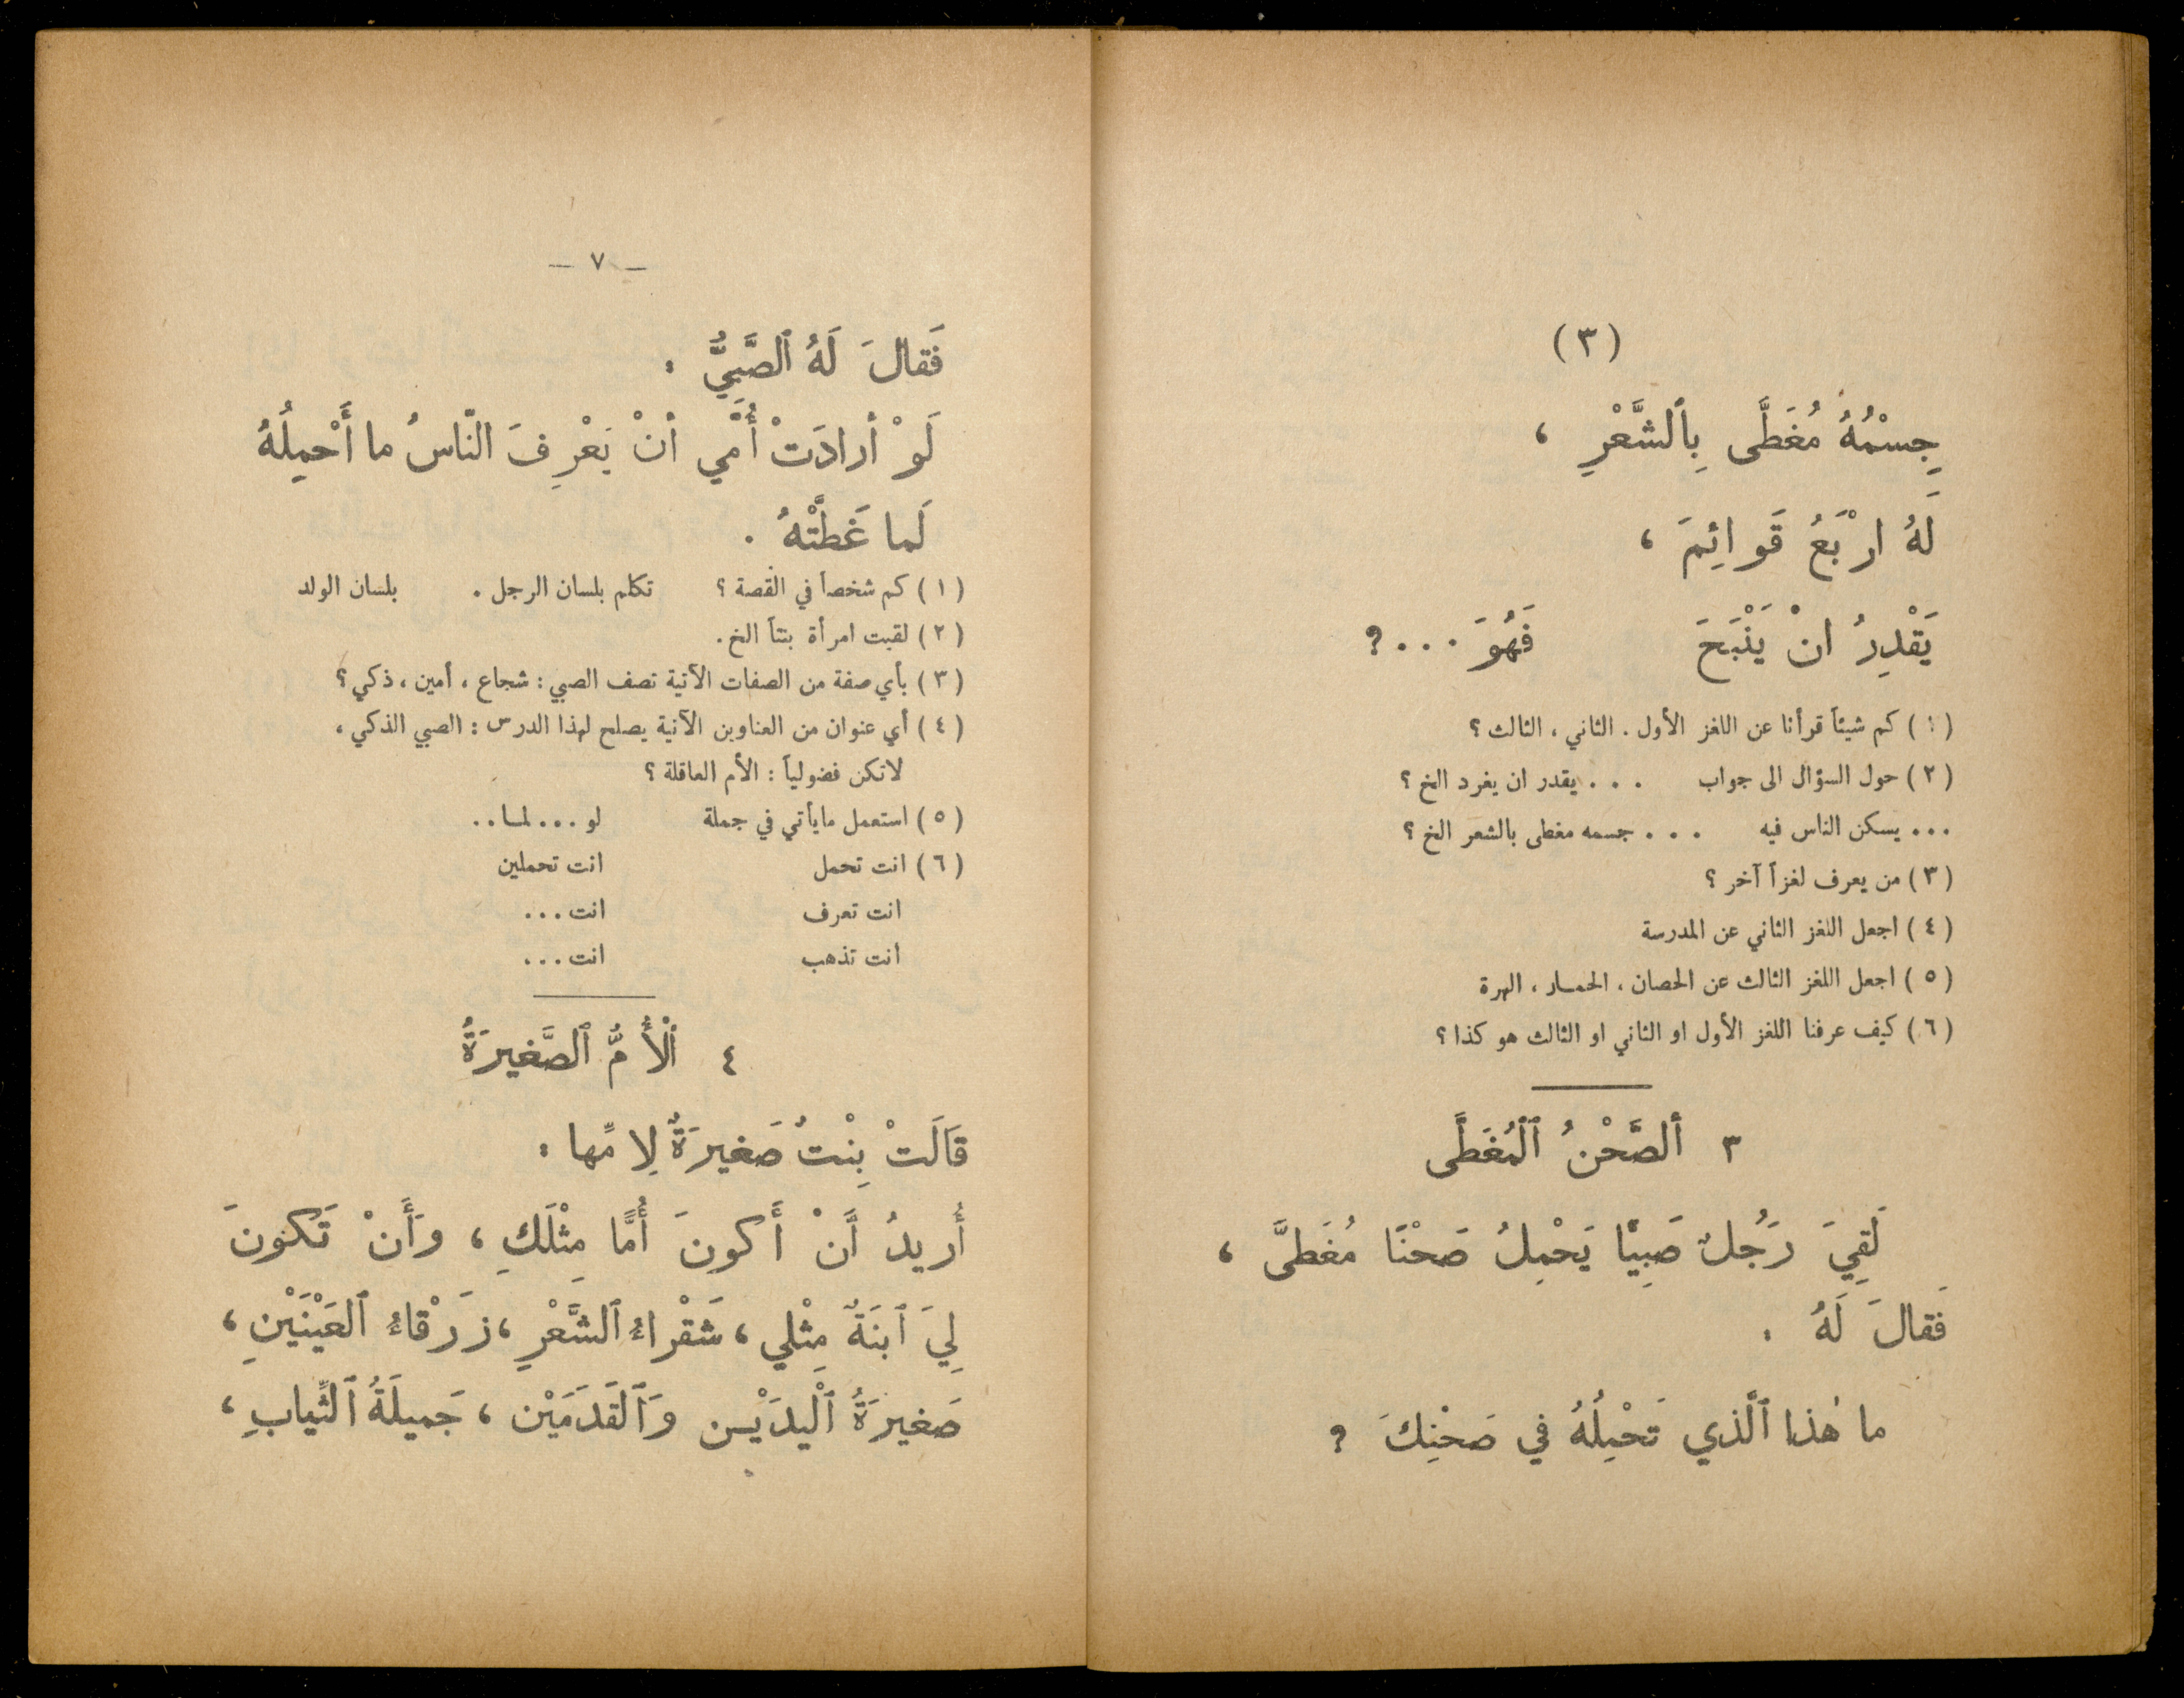 (٣)
جِسْمُهُ مُغَطَّى بِٱلشَّعْرِ ،
لَهُ ارْبَعُ قَوائِمَ ،
يَقْدِرُ انْ يَنْبَحَ فَهُوَ . . . ؟
(١) كم شيئاً قرأنا عن اللغز الأول . الثاني ، الثالث ؟
(٢) حول السؤال الى جواب . . . يقدر ان يغرد الخ ؟
. . . يسكن الناس فيه . . . جسمه مغطى بالشعر الخ ؟
(٣) من يعرف لغزاً آخر ؟
(٤) اجعل اللغز الثاني عن المدرسة
(٥) اجعل اللغز الثالث عن الحصان ، الحمار ، الهرة
(٦) كيف عرفنا اللغز الأول او الثاني او الثالث هو كذا ؟
٣ ألصَّحْنُ ٱلْمُغَطَّى
لَقِيَ رَجُلٌ صَبِيًّا يَحْمِلُ صَحْنًا مُغَطىًّ ،
فَقالَ لَهُ :
ما هٰذا ٱلَّذي تَحْمِلُهُ في صَحْنِكَ ؟
— ٧ —
فَقالَ لَهُ ٱلصَّبِيُّ :
لَوْ أرادَتْ أُمّي أنْ يَعْرِفَ النّاسُ ما أَحْمِلُهُ
لَما غَطَّتْهُ .
(١) كم شخصاً في القصة ؟ تكلم بلسان الرجل . بلسان الولد
(٢) لقيت امرأة بنتاً الخ .
(٣) بأي صفة من الصفات الآتية تصف الصبي : شجاع ، أمين ، ذكي ؟
(٤) أي عنوان من العناوين الآتية يصلح لهذا الدرس : الصبي الذكي ،
لاتكن فضولياً : الأم العاقلة ؟
(٥) استعمل مايأتي في جملة لو . . . لما . .
(٦) انت تحمل انت تحملين
انت تعرف انت . . .
انت تذهب انت . . .
٤ ٱلْأُمُّ ٱلصَّغيرَةُ
قالَتْ بِنْتٌ صَغيرَةٌ لِامِّها :
أُريدُ أَنْ أَكونَ أُمًّا مِثْلَكِ ، وَأَنْ تَكونَ
لِيَ ٱبنَةٌ مِثْلي ، شَقْراءُ ٱلشَّعْرِ ، زَرْقاءُ ٱلعَيْنَيْنِ ،
صَغيرَةُ ٱلْيدَيْن وَٱلقَدَمَيْن ، جَميلَةُ ٱلثِّيابِ ،